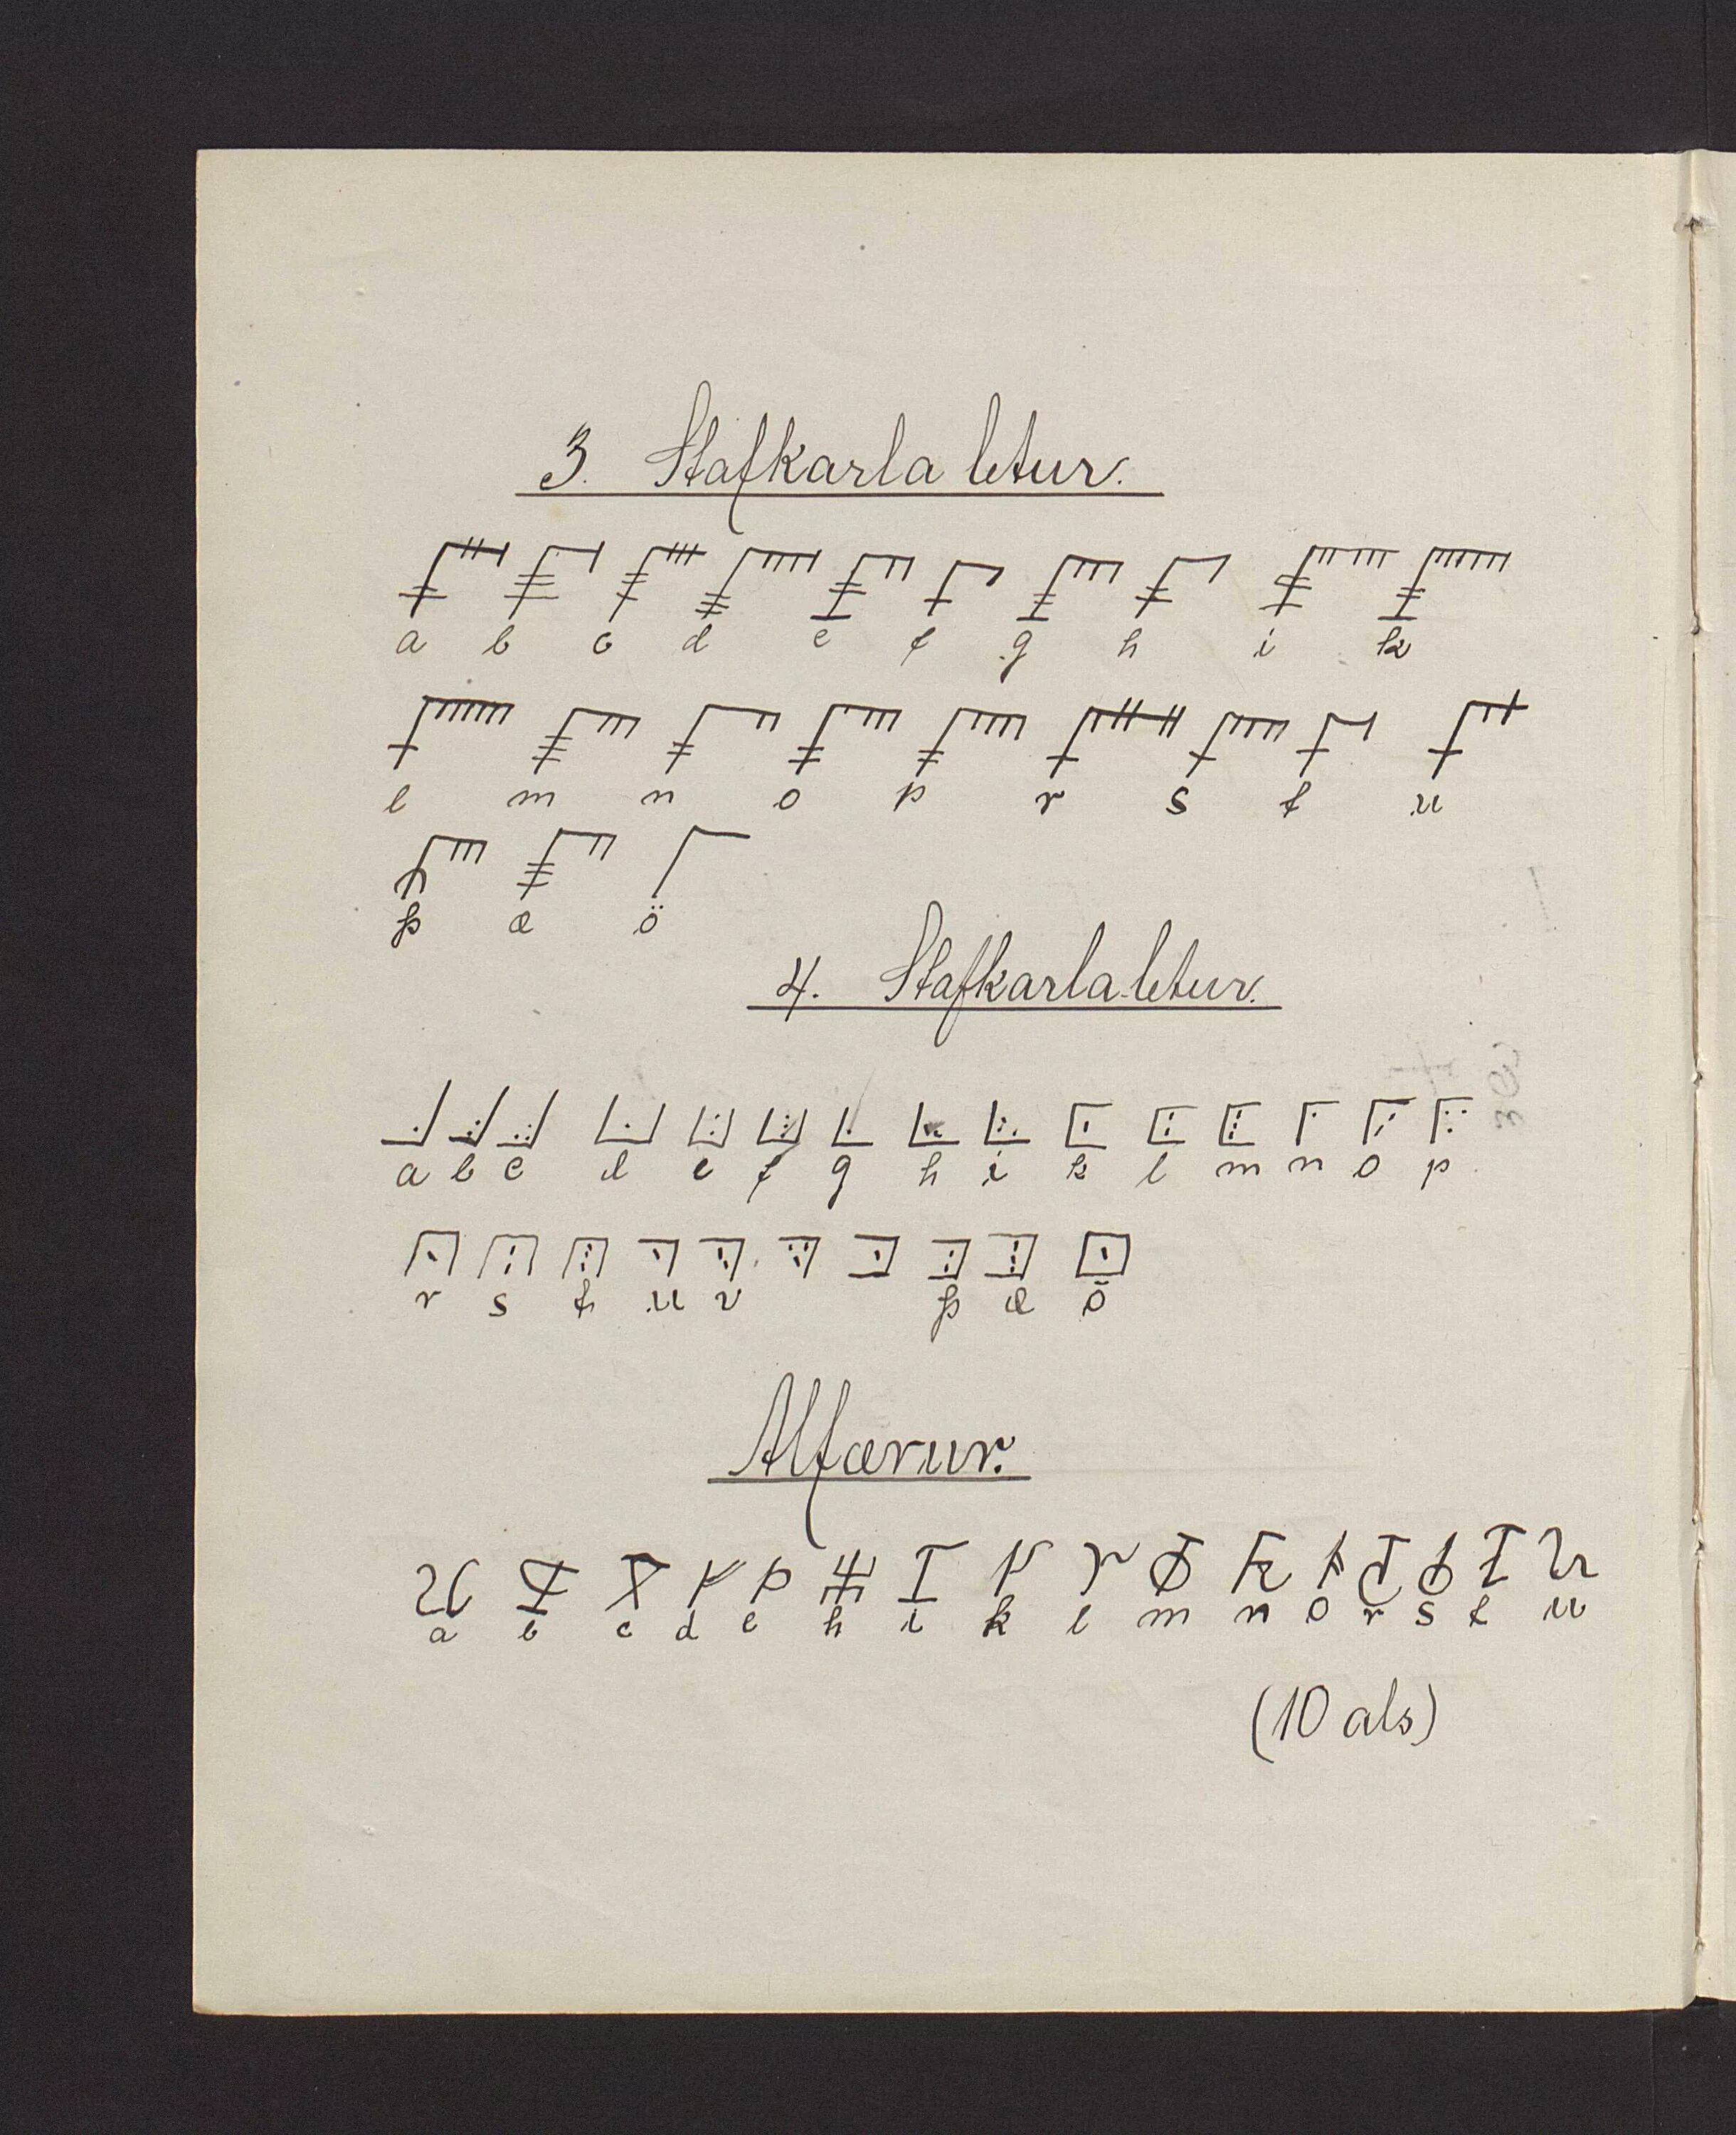 3. Stafkarla letur.
a b c d e f g h i k
l m n o p r s t u
þ æ ö
4. Stafkarla-letur.
a b c d e f g h i k l m n o p
r s t u v þ æ ö
Alfærur.
a b c d e h i k l m n o r s t u
(10 als)